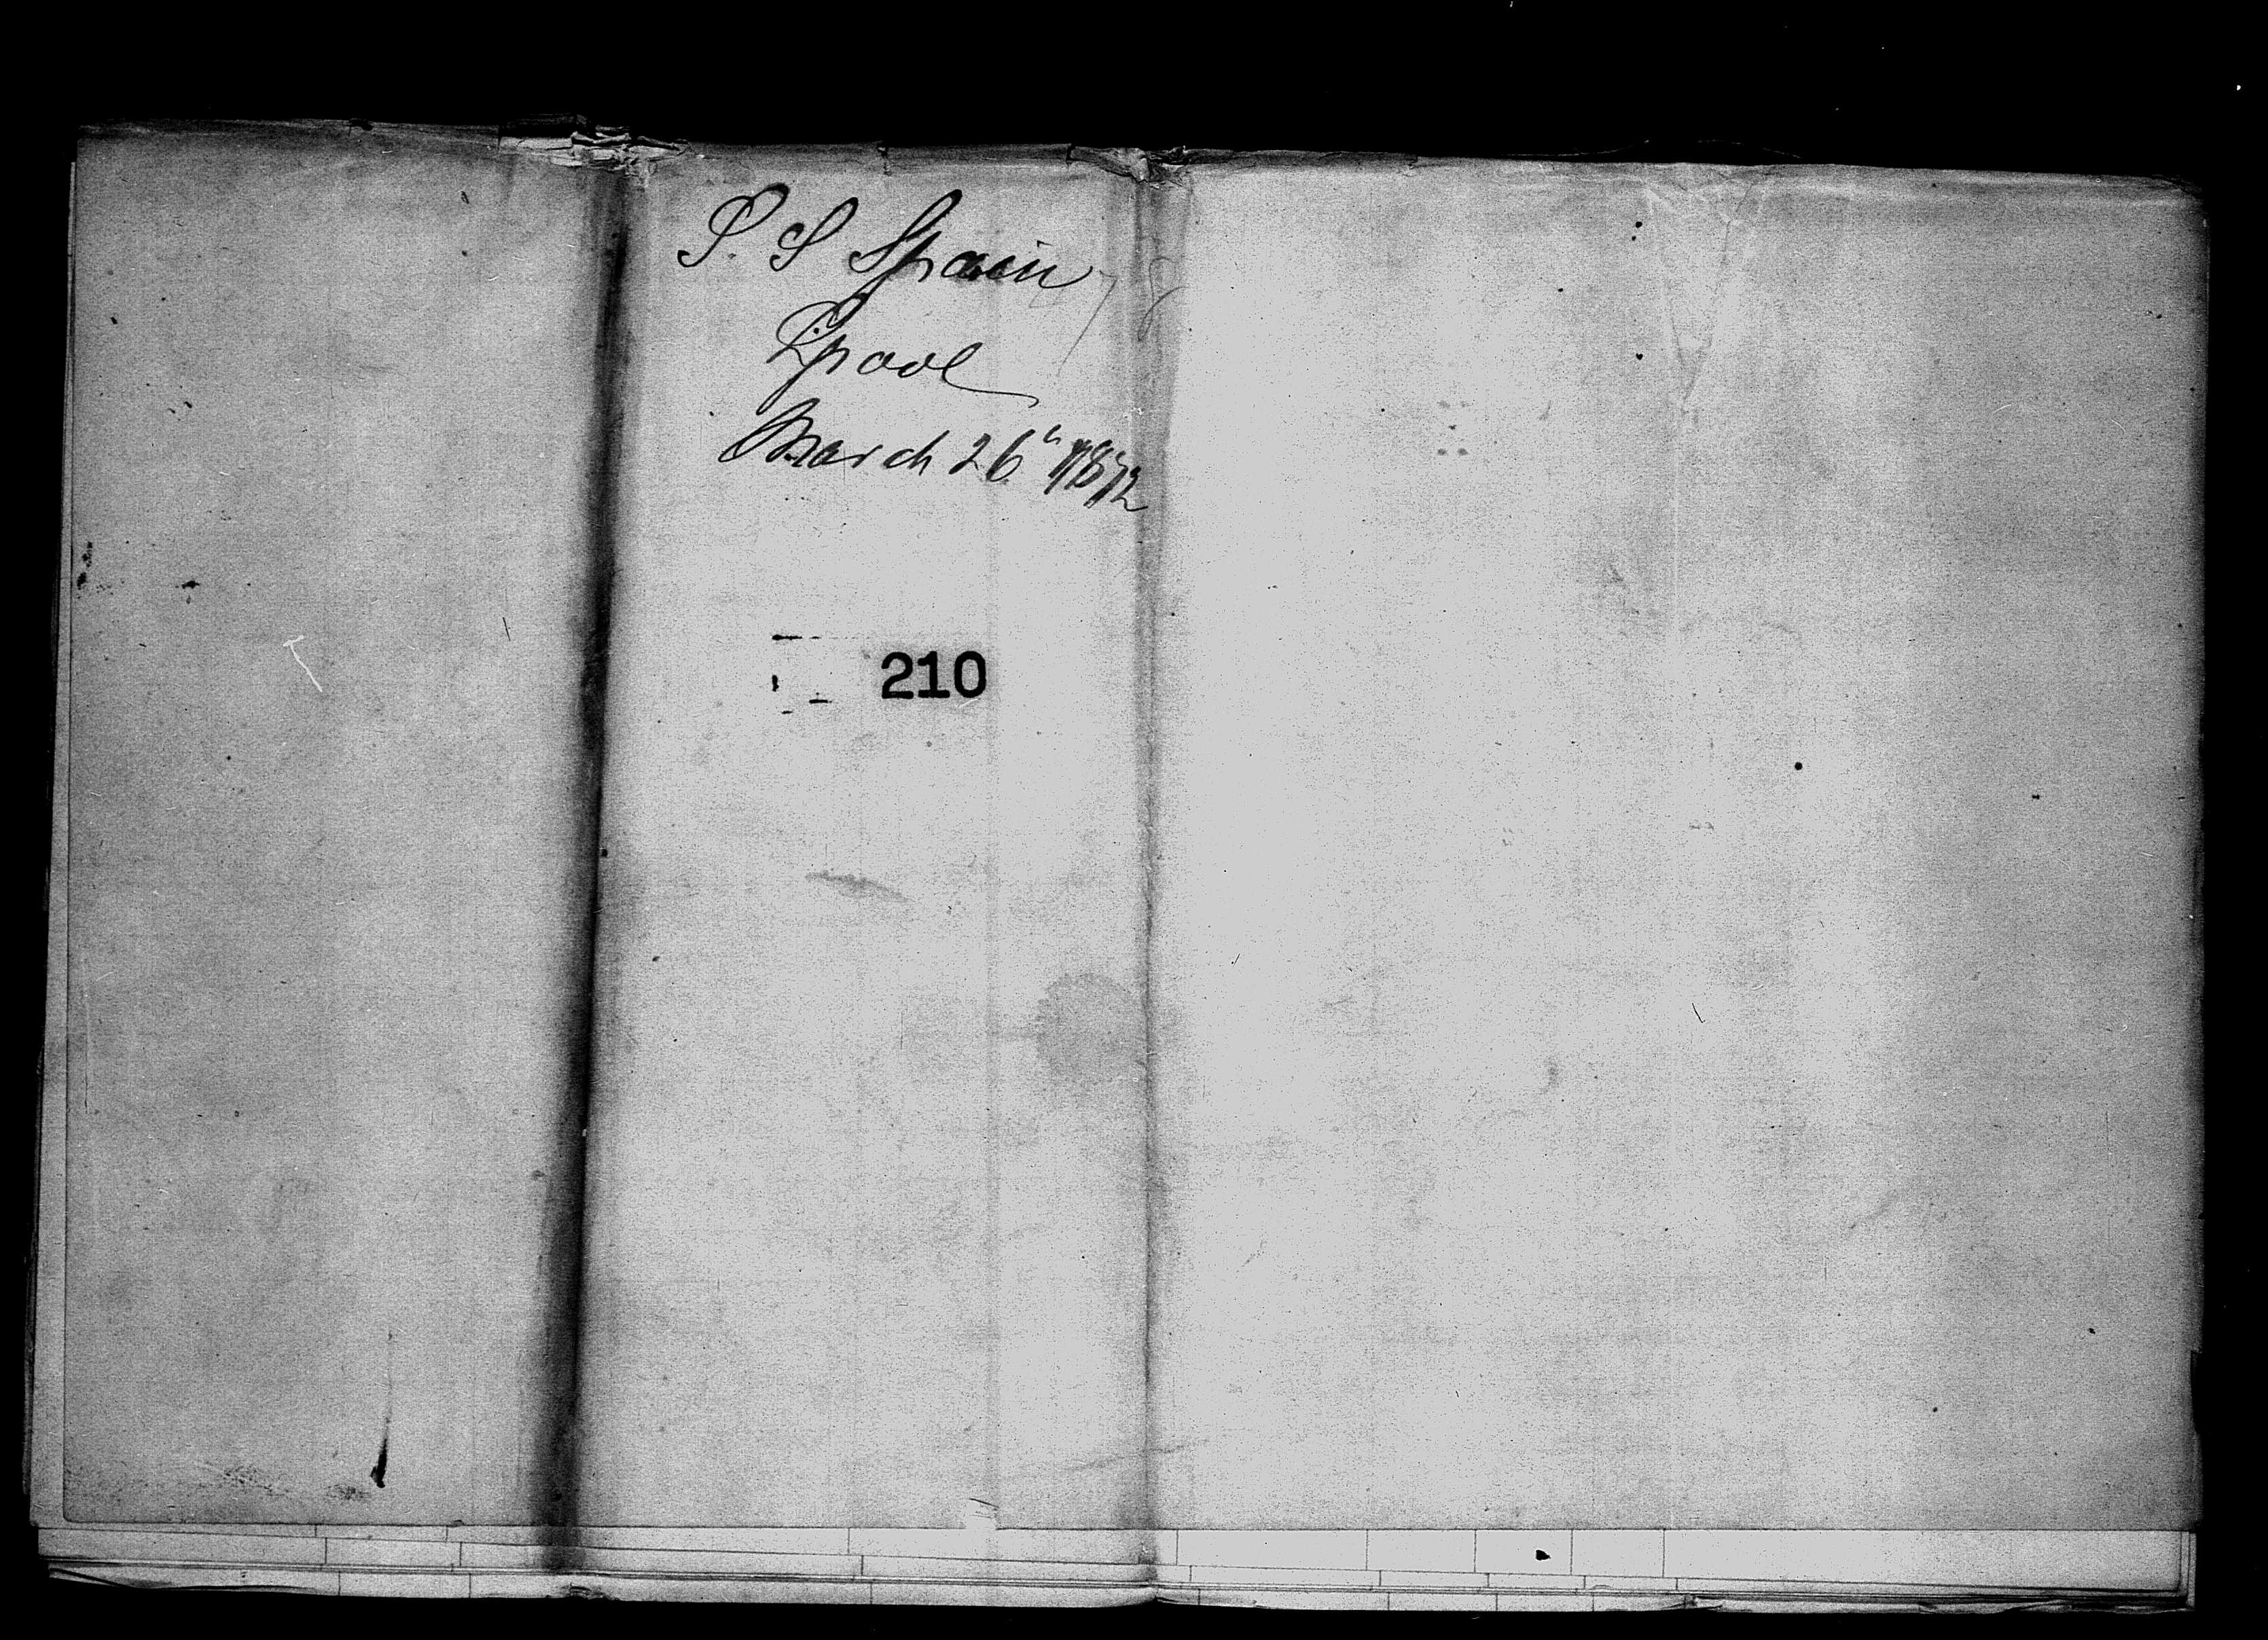 S. S Spain
Lpool
March 26" 1872
210